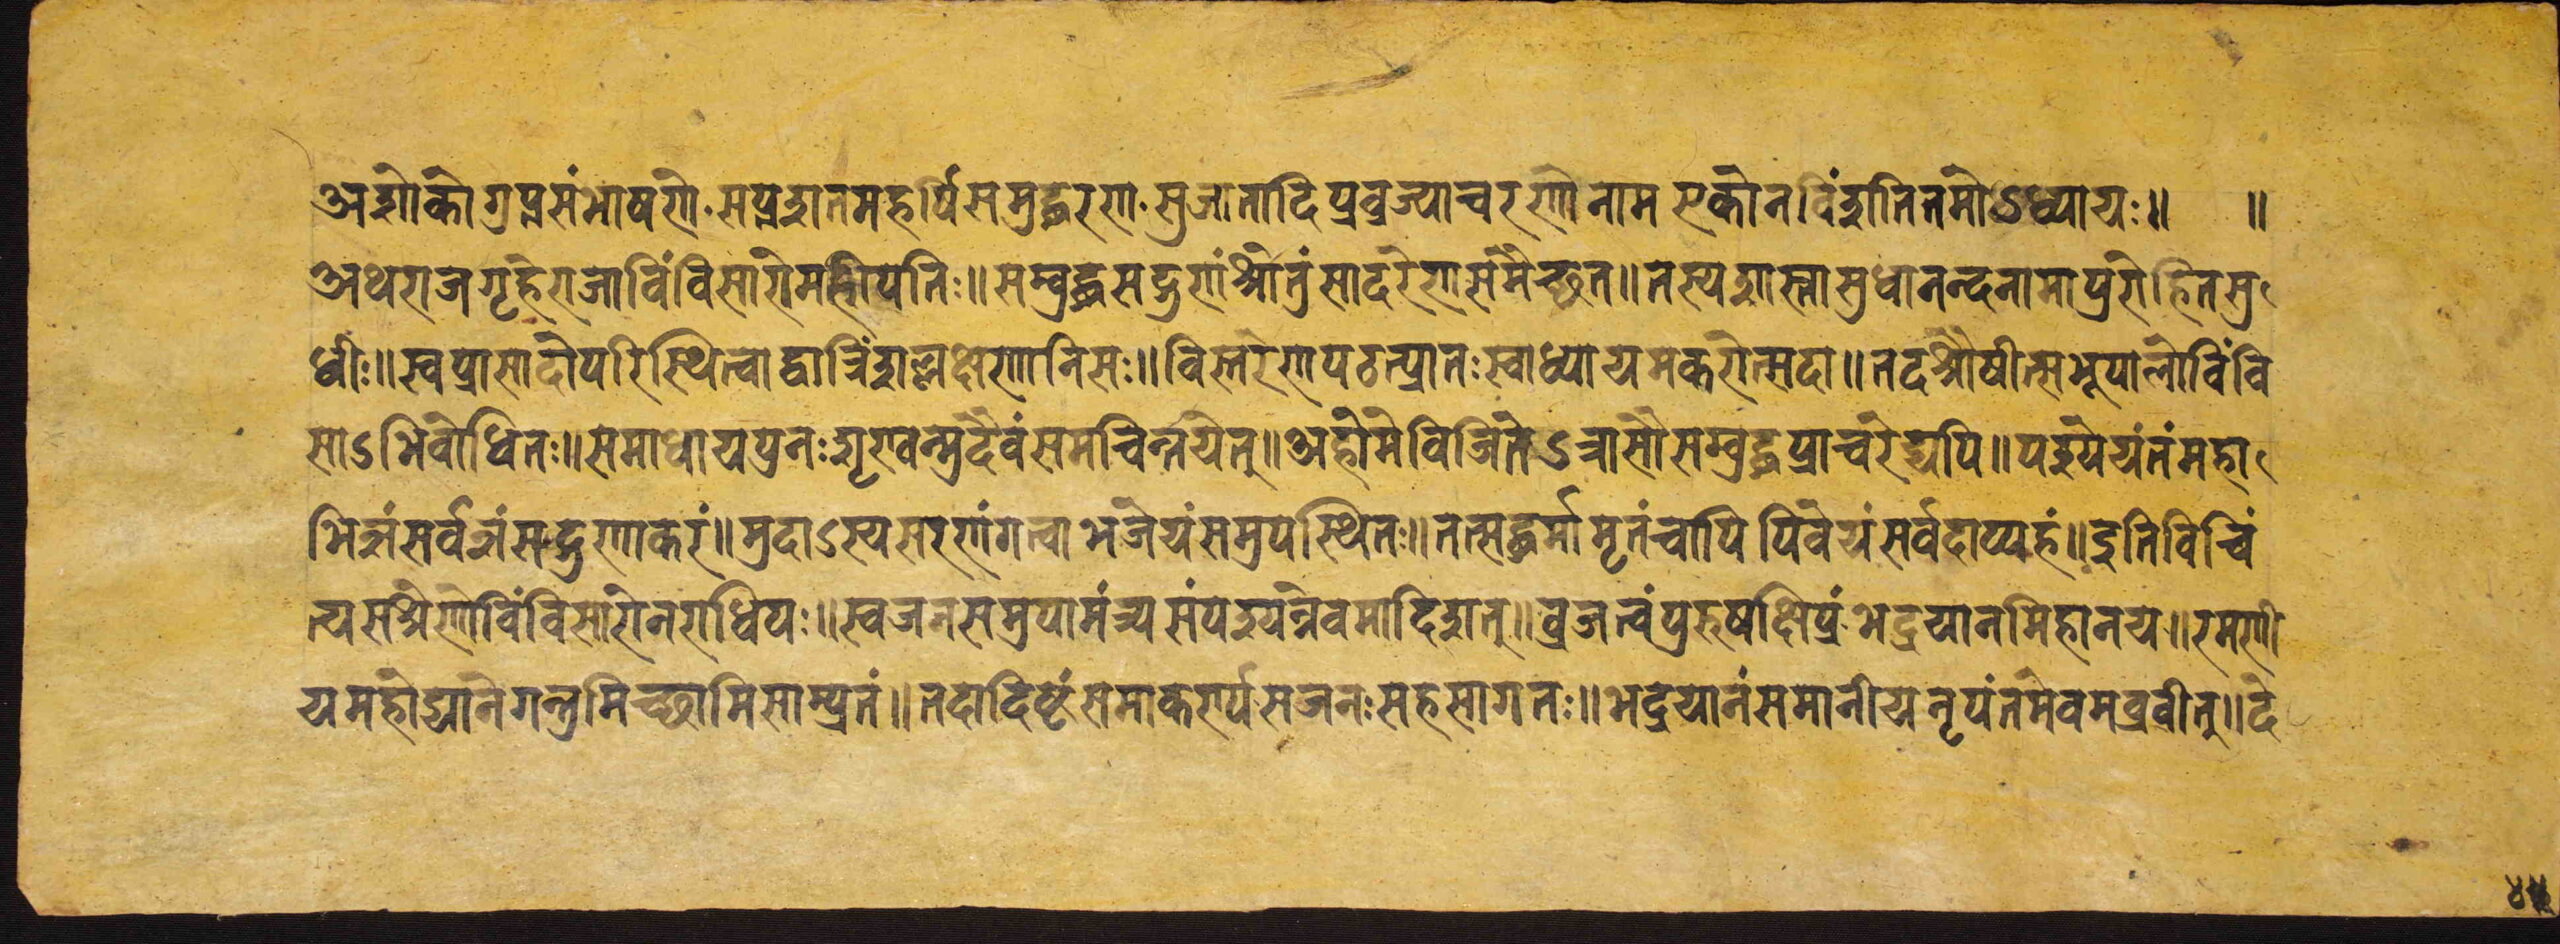 अशोकोगुप्तसंभाषणे.सप्तशतमहर्षिसमुद्धरण.सुजातादिप्रव्रज्याचरणोनाम एकोनविंशतितमोऽध्यायः॥ ॥
अथराजगृहेराजाविंविसारोमहीपतिः॥सम्बुद्धसद्गुणंश्रोतुंसादरेणसमैच्छत॥तस्यशास्तासुधानन्दनामापुरोहितसु
धीः॥स्वप्रासादोपरिस्थित्वाद्वात्रिंशल्लक्षणानिसः॥विस्तरेणपठत्प्रातःस्वाध्यायमकरोत्सदा॥तदश्रौषीत्सभूपालोविंवि
साऽभिवोधितः॥समाधायपुनःशृण्वन्मुदैवंसमचिन्तयत्॥अहोमेविजितेऽत्रासौसम्बुद्धप्राचरेद्यपि॥पश्येयंतंमहा
भिज्ञंसर्वज्ञंसद्गुणाकरं॥मुदाऽस्यसरणंगत्वाभजेयंसमुपस्थितः॥तत्सद्धर्मामृतंचापिपिवेयंसर्वदाप्यहं॥इतिविचिं
त्यसश्रेणोविंविसारोनराधिपः॥स्वजनसमुपामंत्र्यसंपश्यन्नेवमादिशत्॥व्रजत्वंपुरुषक्षिप्रंभद्रयानमिहानय॥रमणी
यमहोद्यानेगन्तुमिच्छामिसाम्प्रतं॥तदादिष्टंसमाकर्ण्यसजनःसहसागतः॥भद्रयानंसमानीयनृपंतमेवमव्रवीत्॥दे